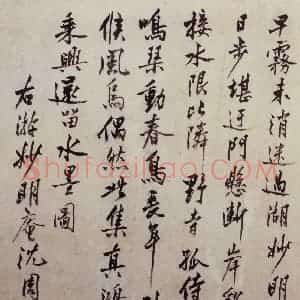 早霧未消迷過湖妙明
日步堪迂門懸斷岸
接水限比隣野音孤侍
鳴琴動春鳥長年
候風烏偶然此集真鴻
乘興還留水墨圖
右游妙明庵沈周
Shufaziliao.COM